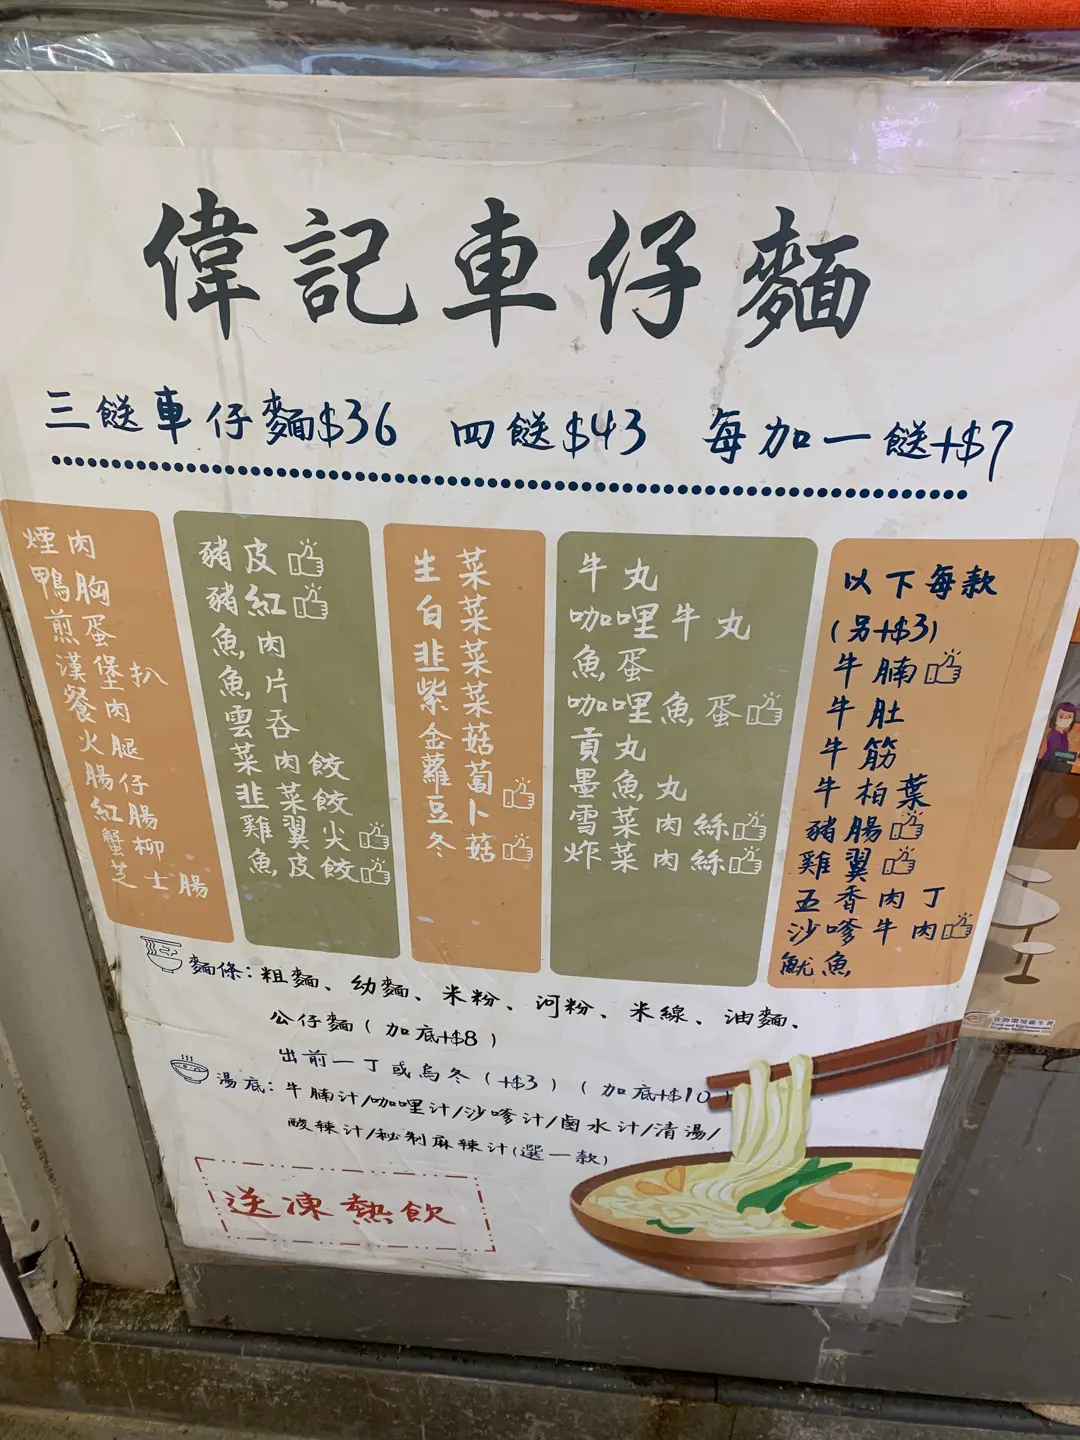 偉記車仔麵
三餸車仔麵$36 四餸$43 每加一餸+$7
煙肉
鴨胸
煎蛋
漢堡扒
餐肉
火腿
腸仔
紅腸
蟹柳
芝士腸
豬皮
豬紅
魚肉
魚片
雲吞
菜肉餃
韭菜餃
雞翼尖
魚皮餃
生菜
白菜
韭菜
紫菜
金菇
蘿蔔
豆卜
冬菇
牛丸
咖哩牛丸
魚蛋
咖哩魚蛋
貢丸
墨魚丸
雪菜肉絲
炸菜肉絲
以下每款
(另+$3)
牛腩
牛肚
牛筋
牛柏葉
豬腸
雞翼
五香肉丁
沙嗲牛肉
魷魚
麵條：粗麵、幼麵、米粉、河粉、米線、油麵、
公仔麵(加底+$8)
出前一丁或烏冬(+$3)(加底+$10)
湯底：牛腩汁/咖哩汁/沙嗲汁/鹵水汁/清湯/
酸辣汁/秘制麻辣汁(選一款)
送凍熱飲
食物環境衞生署
Food and Environmental
Hygiene Department